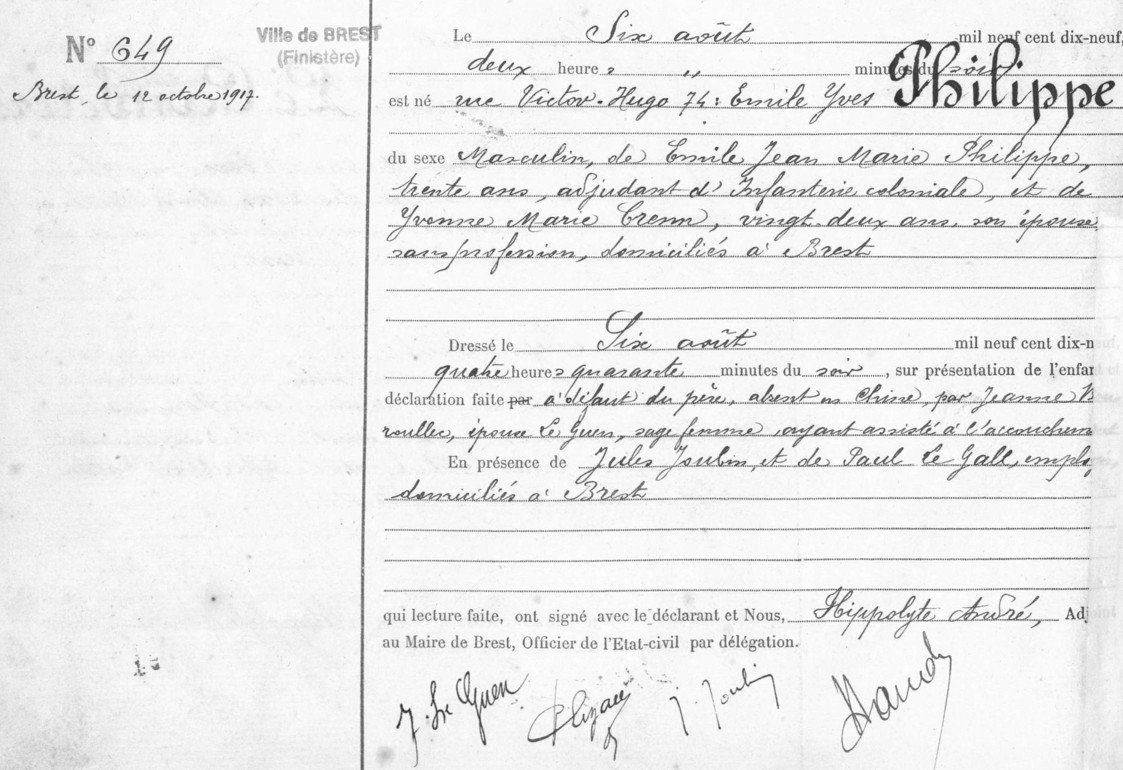 N° 649
Ville de BREST
(Finistère)
Brest, le 12 octobre 1917.
Le Six août mil neuf cent dix-neuf,
deux heure s " minutes du soir
est né rue Victor-Hugo 74: Emile Yves Philippe
du sexe Masculin, de Emile Jean Marie Philippe,
trente ans, adjudant d'Infanterie coloniale, et de
Yvonne Marie Crenn, vingt-deux ans, son épouse,
sans profession, domiciliés à Brest
Dressé le Six août mil neuf cent dix-n
quatre heure s quarante minutes du soir, sur présentation de l'enfan
déclaration faite par à défaut du père, absent en Chine, par Jeanne
roullec, épouse Le Guen, sage femme, ayant assisté à l'accouchem
En présence de Jules Joubin, et de Paul Le Gall, emplo
domiciliés à Brest
qui lecture faite, ont signé avec le déclarant et Nous, Hippolyte André, Adj
au Maire de Brest, Officier de l'Etat-civil par délégation.
J. Le Guen J. Joubin